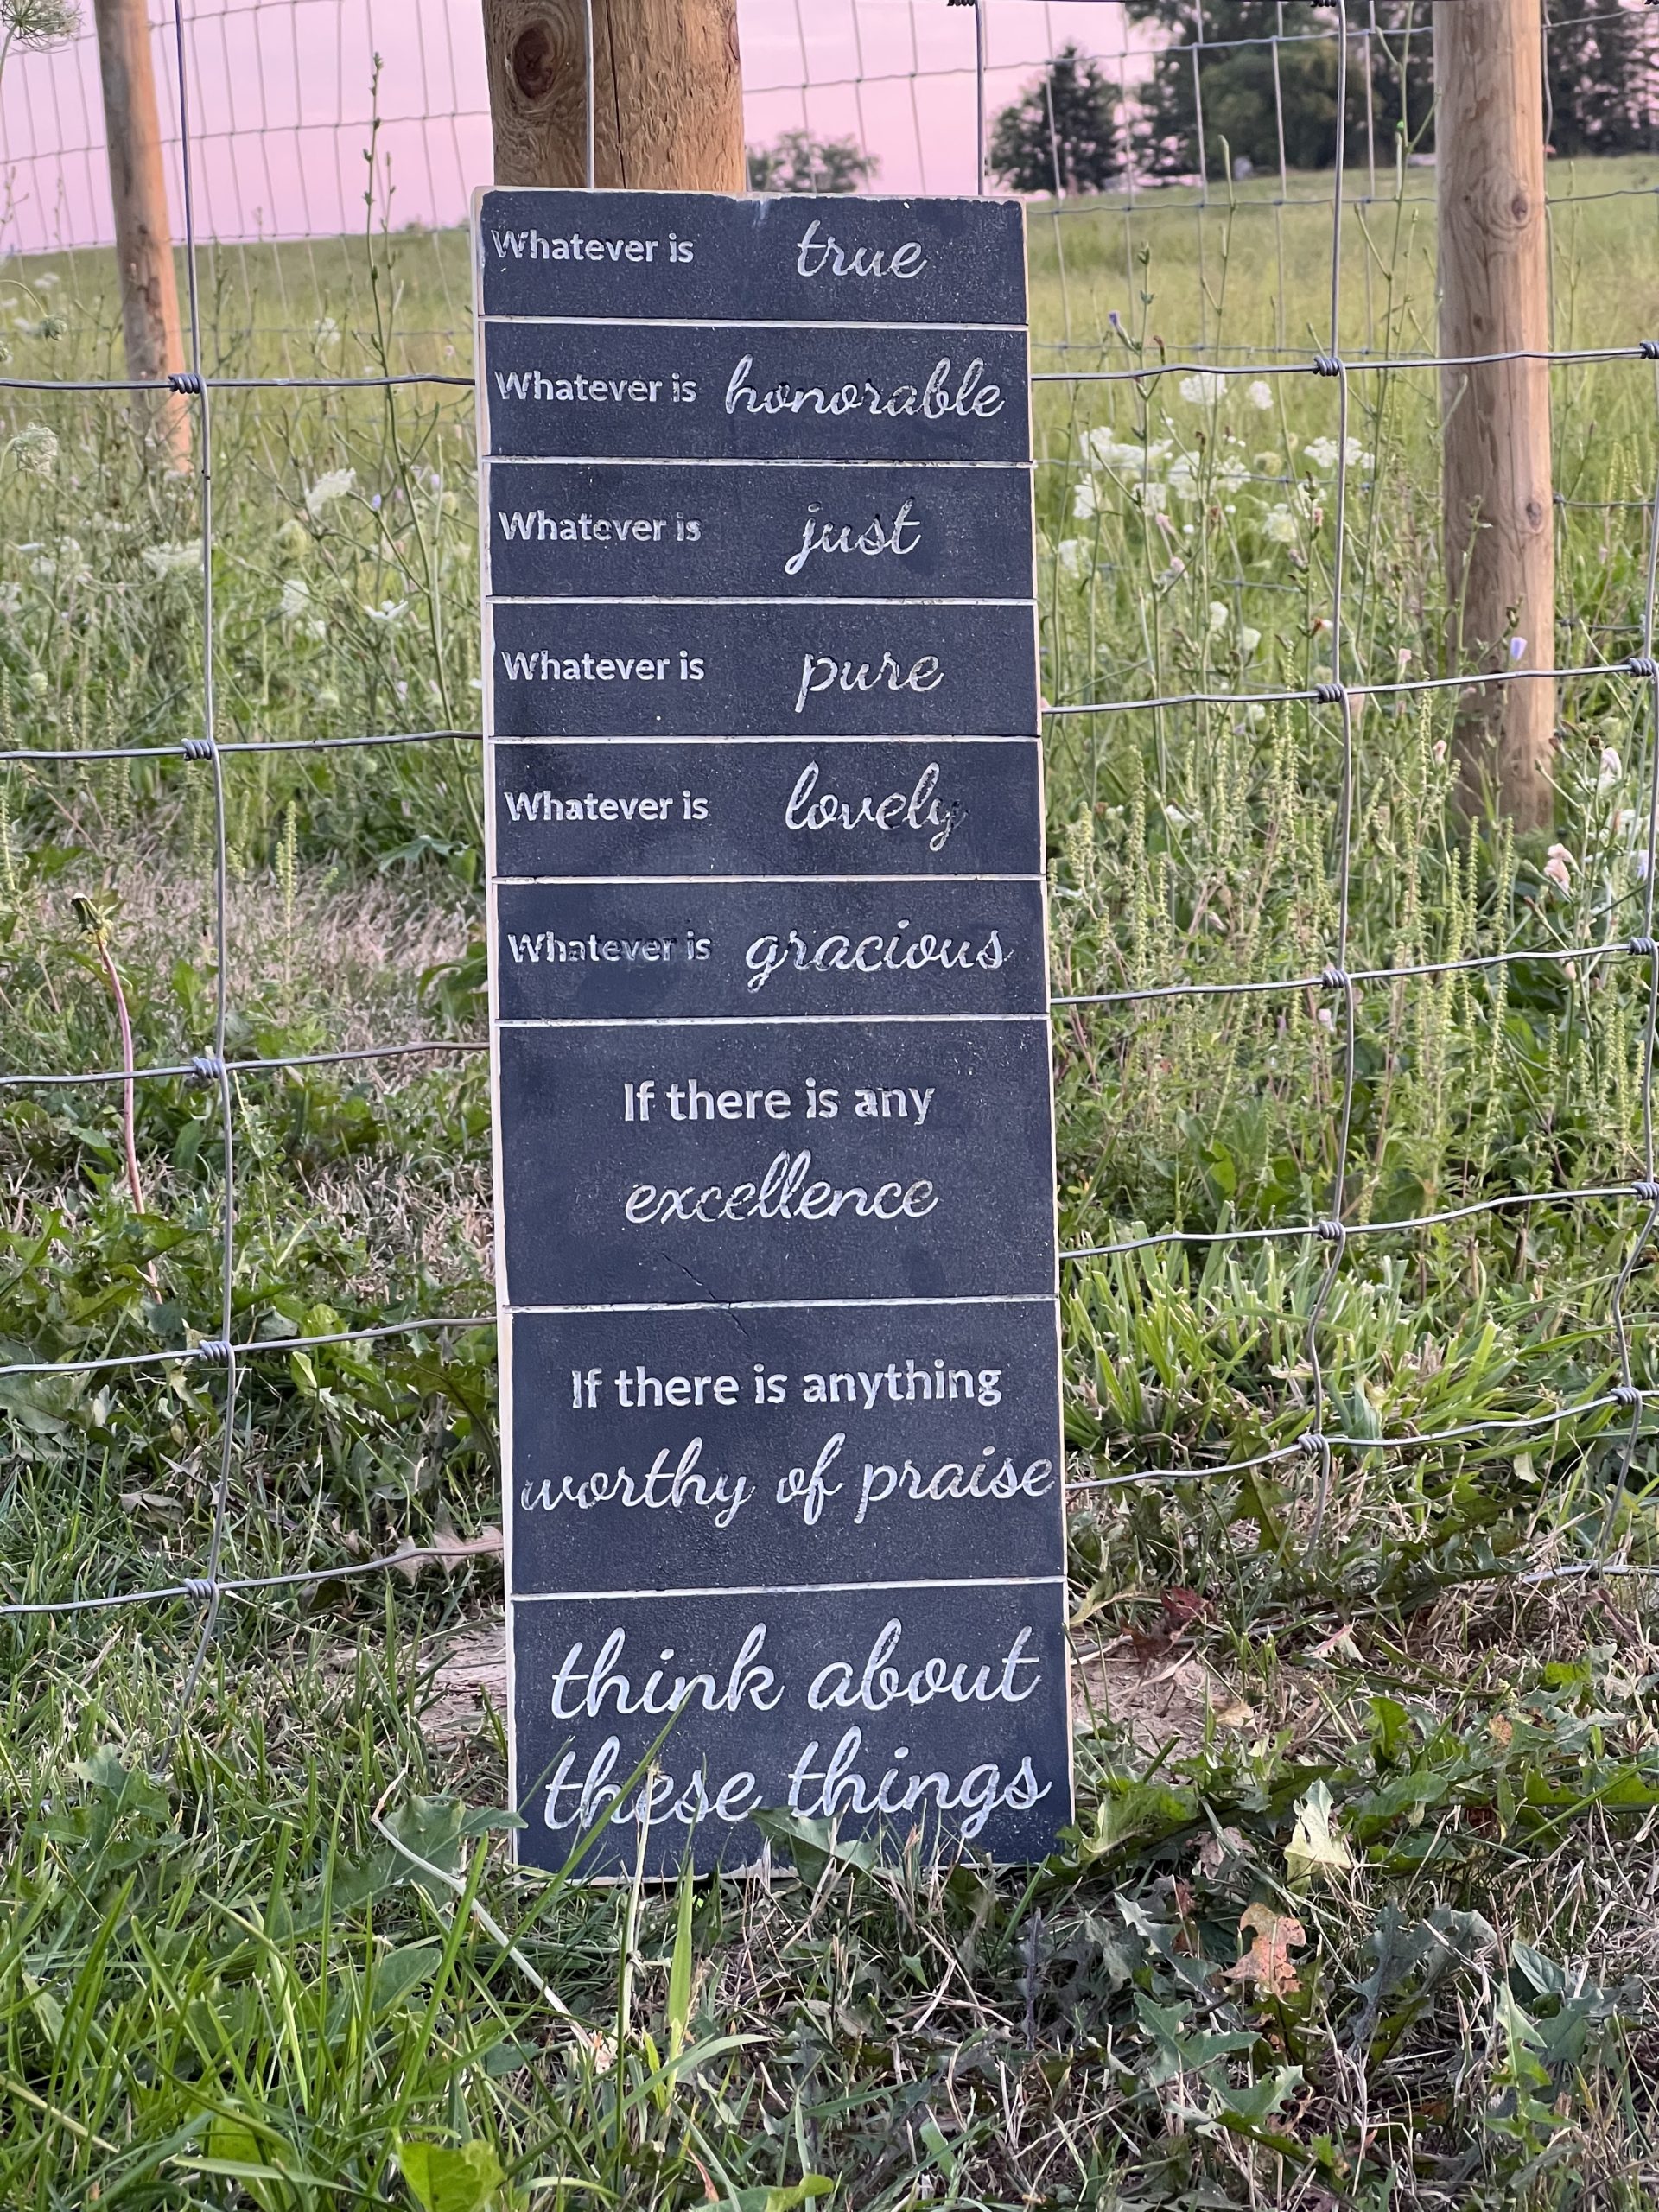 Whatever is true
Whatever is honorable
Whatever is just
Whatever is pure
Whatever is lovely
Whatever is gracious
If there is any
excellence
If there is anything
worthy of praise
think about
these things